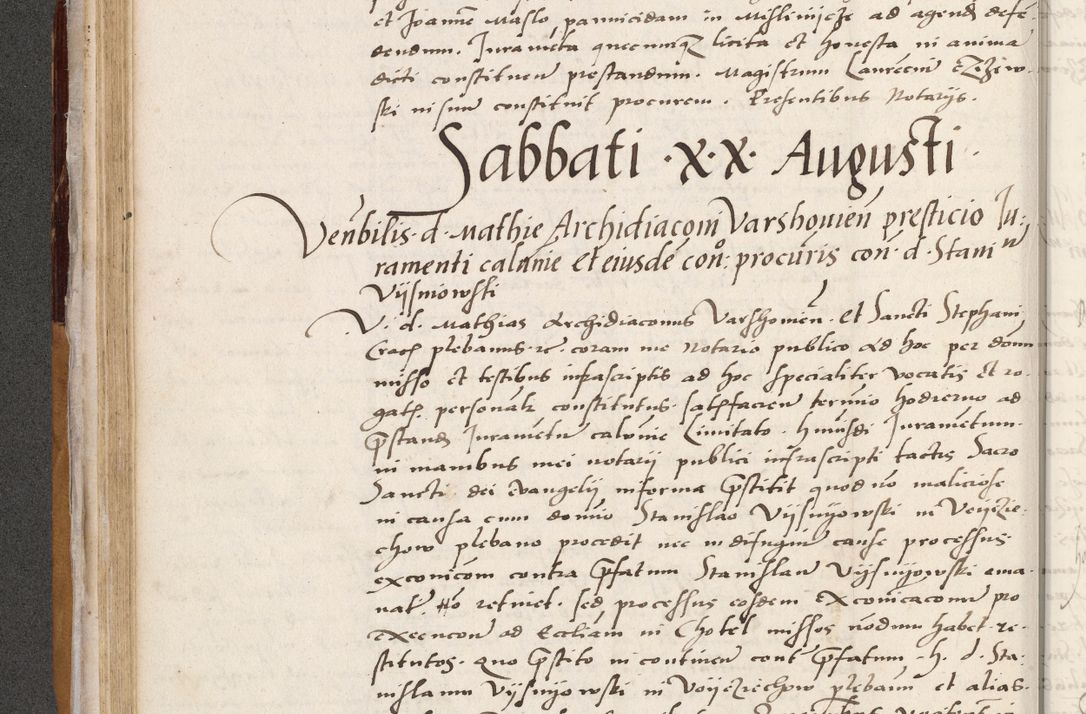 et Joanne Maslo pannicidam in Mislimicze ad agend defe
dendum. Juramēta quecumqz licita et honesta in anima
dicti constituen prestandum. Magistrum Laurenciū
ski in suū constituit procurem. Presentibus Notarijs.
Sabbati ·x·x· Augusti
Venbilis d Mathie Archidiaconi Varshovien presticio Ju:
ramenti calunie Et eiusdē con procuris con d Stani
Vijsniowski
V. d. Mathias Archidiaconus Varshovien. et Sancti Stephani
Crac plebanus coram me Notario publico ad hoc per domi
nisso et testibus infrascriptis ad hoc specialiter vocatis et ro
gat personalr constitutus. satisfacien termino hodierno ad
pstand Juramentū calunie Limitato. hmusdi Juramētum
in manibus mei notarii publici infrascripti tactis Sacro
Sancti dei Evangelij in forma pstitit quod nō maliciose
in causa cum domio Stanislao Vijsnijowski in Voijczie
chow plebano procedit nec in difugiū cause processus
exconicom contra pfatum Stanislaū Vijsnijowski ema
nat retinet. sed processus eosdem Exconicaconū pro
execucoē ad Eccliam in Chotel missos nōdum habet re
stitutos. quo pstito in continen cont pfatum h. d. Sta
nislaum Vijsnijowski in Voijcziechow plebanū et alias